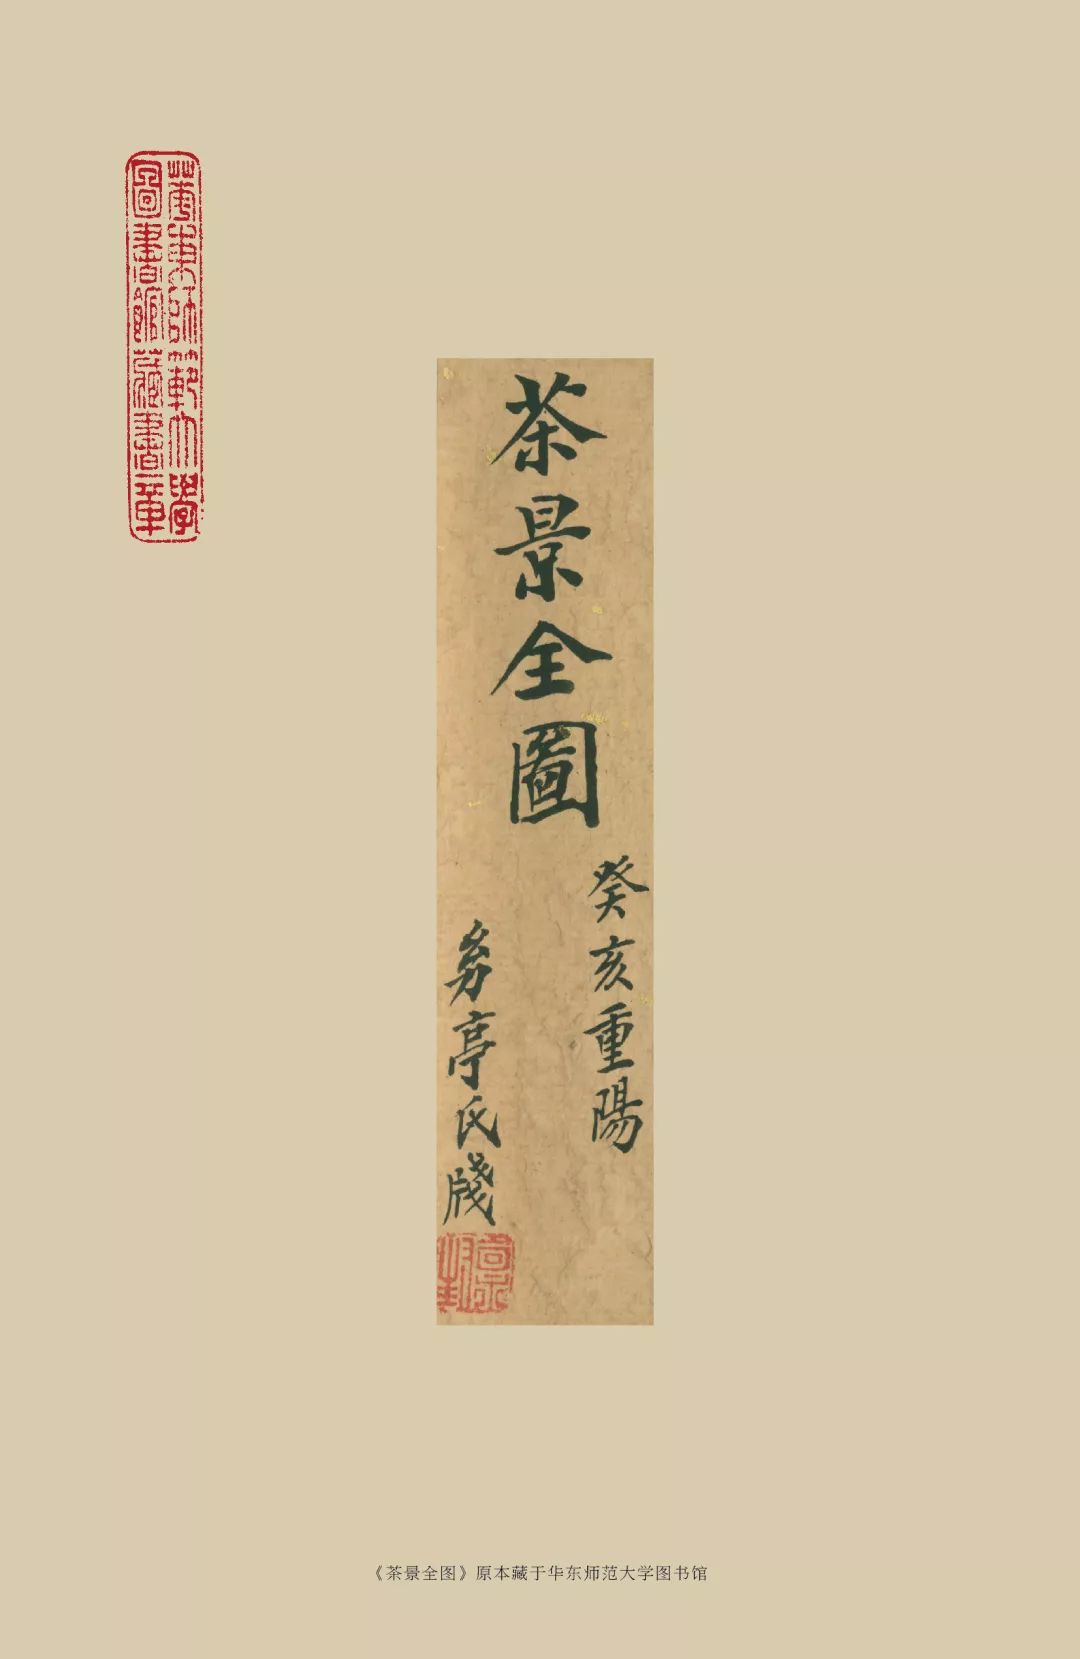 華東師範大學
圖書館藏書章
茶景全圖
癸亥重陽
亭氏牋
《茶景全图》原本藏于华东师范大学图书馆